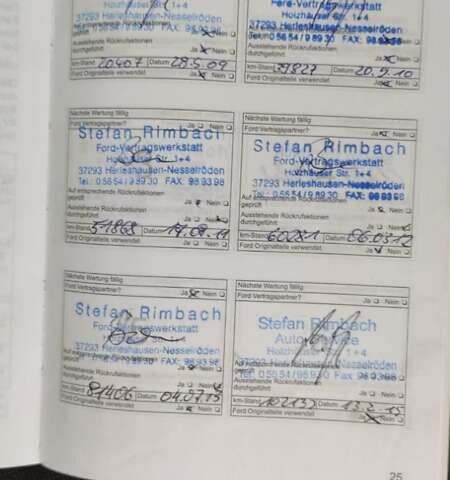 37293 Herleshausen-Nesselröden
Ford-Vertragswerkstatt
Holzhäuser Str. 1+4
37293 Herleshausen-Nesselröden
Tel.: 0 56 54 / 9 89 30 FAX: 98 93 98
Ausstehende Rückrufaktionen
durchgeführt Ja Nein
km-Stand 20407 Datum 28.5.09
Ford Originalteile verwendet Ja Nein
Ausstehende Rückrufaktionen
durchgeführt Ja Nein
km-Stand 39827 Datum 20.9.10
Ford Originalteile verwendet Ja Nein
Nächste Wartung fällig
Ford Vertragspartner? Ja Nein
Stefan Rimbach
Ford-Vertragswerkstatt
Holzhäuser Str. 1+4
37293 Herleshausen-Nesselröden
Tel.: 0 56 54 / 9 89 30 FAX: 98 93 98
Auf entsprechende Rückrufaktionen
geprüft Ja Nein
Ausstehende Rückrufaktionen
durchgeführt Ja Nein
km-Stand 51868 Datum
Ford Originalteile verwendet Ja Nein
Nächste Wartung fällig
Ford Vertragspartner? Ja Nein
Stefan Rimbach
Ford-Vertragswerkstatt
Holzhäuser Str. 1+4
37293 Herleshausen-Nesselröden
Tel.: 0 56 54 / 9 89 30 FAX: 98 93 98
geprüft Ja Nein
Ausstehende Rückrufaktionen
durchgeführt Ja Nein
km-Stand 60281 Datum 06.03.12
Ford Originalteile verwendet Ja
Nächste Wartung fällig
Ford Vertragspartner? Ja Nein
Stefan Rimbach
Ford-Vertragswerkstatt
Holzhäuser Str. 1+4
37293 Herleshausen-Nesselröden
Tel.: 0 56 54 / 9 89 30 FAX: 98 93 98
geprüft Ja Nein
Ausstehende Rückrufaktionen
durchgeführt Ja Nein
km-Stand 81406 Datum 04.07.13
Ford Originalteile verwendet Ja Nein
Nächste Wartung fällig
Ford Vertragspartner? Ja Nein
Stefan Rimbach
Holzhäuser Str. 1+4
37293 Herleshausen-Nesselröden
Tel. 0 56 54 / 9 89 30 Fax 98 93 98
Ausstehende Rückrufaktionen
durchgeführt Ja Nein
km-Stand 102137 Datum
Ford Originalteile verwendet Ja Nein
25